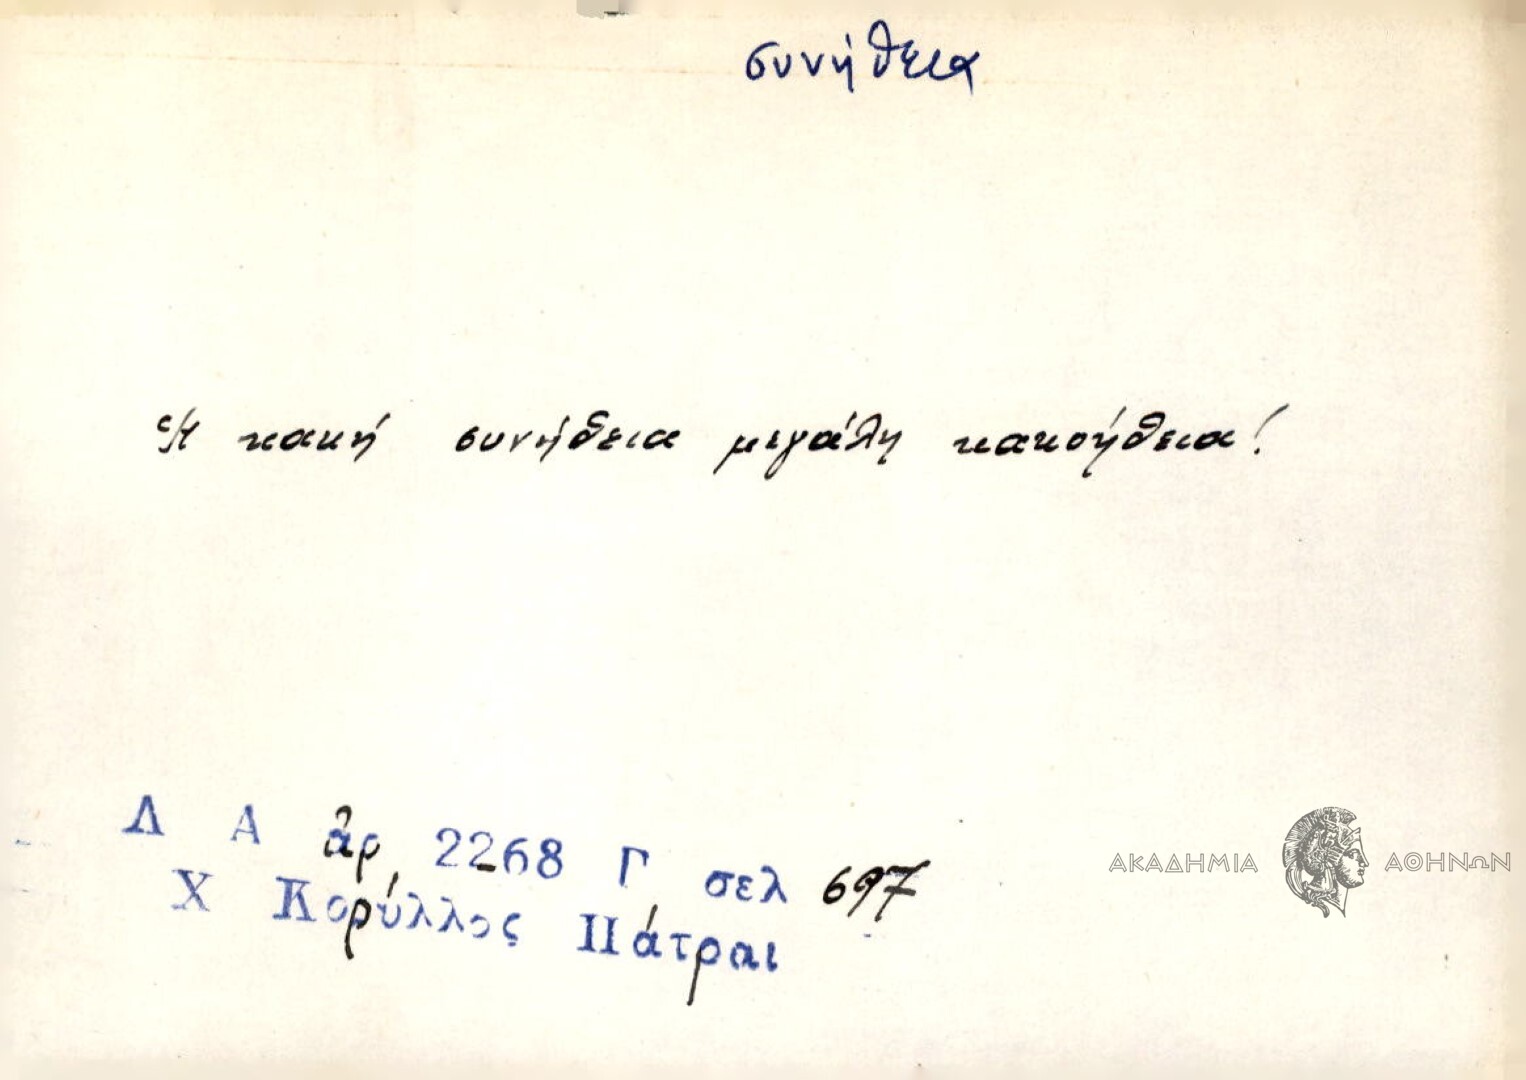 συνήθεια
Ἡ κακή συνήθεια μεγάλη κακοήθεια!
Λ Α ἀρ 2268 Γ σελ 697
Χ Κορύλλος Πάτραι
ΑΚΑΔΗΜΙΑ ΑΘΗΝΩΝ